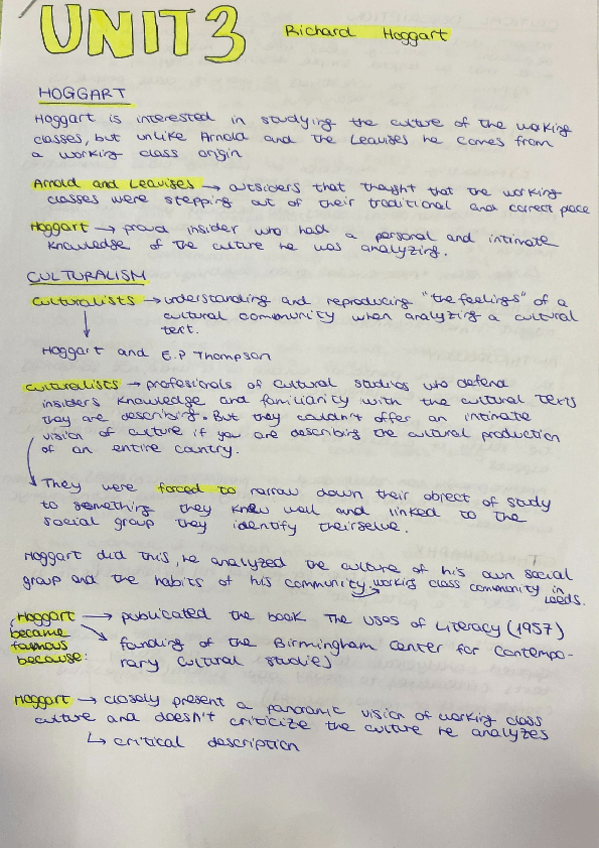 UNIT 3 Richard Hoggart
HOGGART
Hoggart is interested in studying the culture of the working
classes, but unlike Arnold and the Leavises he comes from
a working class origin
Arnold and Leavises → outsiders that thought that the working
classes were stepping out of their traditional and correct place
Hoggart → proud insider who had a personal and intimate
knowledge of the culture he was analyzing.
CULTURALISM
culturalists → understanding and reproducing "the feelings" of a
cultural community when analyzing a cultural
text.
Hoggart and E.P Thompson
culturalists → profesionals of cultural studies who defend
insider's knowledge and familiarity with the cultural texts
they are describing. But they couldn't offer an intimate
vision of culture if you are describing the cultural production
of an entire country.
They were forced to narrow down their object of study
to something they knew well and linked to the
social group they identify theirselve.
Hoggart did this, he analyzed the culture of his own social
group and the habits of his community → working class community in
Leeds.
Hoggart → publicated the book The Uses of Literacy (1957)
became → founding of the Birmingham Center for Contempo-
famous rary Cultural Studies
because:
Hoggart → closely present a panoramic vision of working class
culture and doesn't criticize the culture he analyzes
↳ critical description